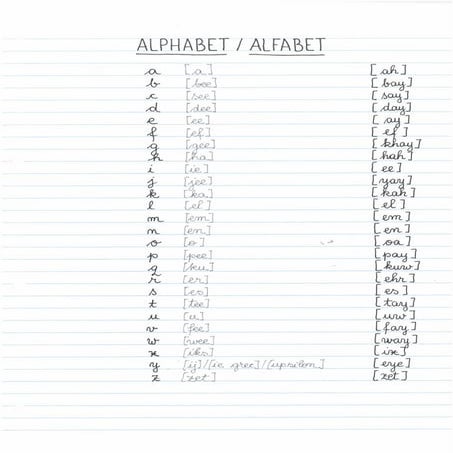 ALPHABET / ALFABET
a [a] [ah]
b [bee] [bay]
c [see] [say]
d [dee] [day]
e [ee] [ay]
f [ef] [ef]
g [gee] [khay]
h [ha] [hah]
i [ie] [ee]
j [jee] [yay]
k [ka] [kah]
l [el] [el]
m [em] [em]
n [en] [en]
o [o] [oa]
p [pee] [pay]
q [ku] [kuw]
r [er] [ehr]
s [es] [es]
t [tee] [tay]
u [u] [uw]
v [fee] [fay]
w [wee] [way]
x [iks] [ix]
y [ij]/[ie grec]/[upsilon] [eye]
z [zet] [zet]